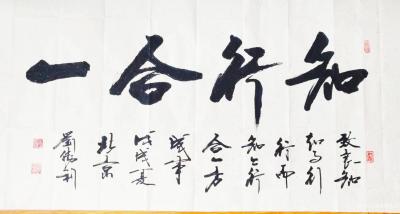 知行合一
致良知
知而行
行而
知之行
合一方
成事
戊戌夏
北京